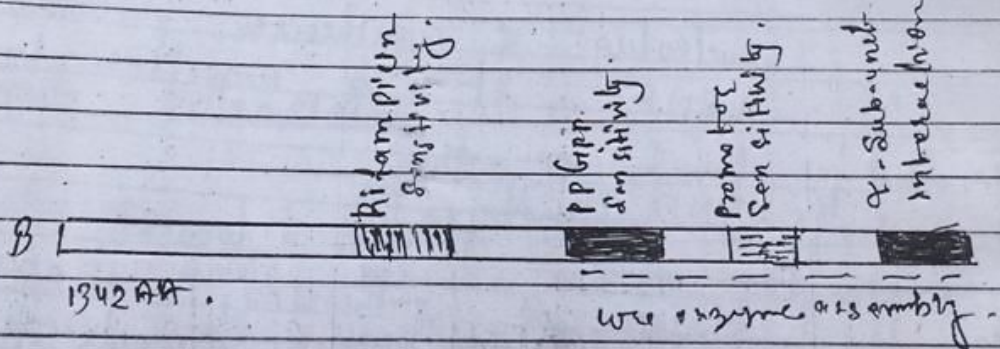 Rifampicin
Sensitivity.
ppGipp.
Sensitivity.
promotor
Sensitivity.
α-Subunit
interaction
B
1342 AA.
core enzyme assembly.